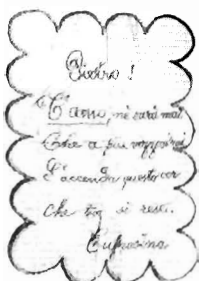 Pietro!
T'amo, nè sarà mai
Che a più vagg
S'accenda questo cor
che tuo si rese.
Eufrosina